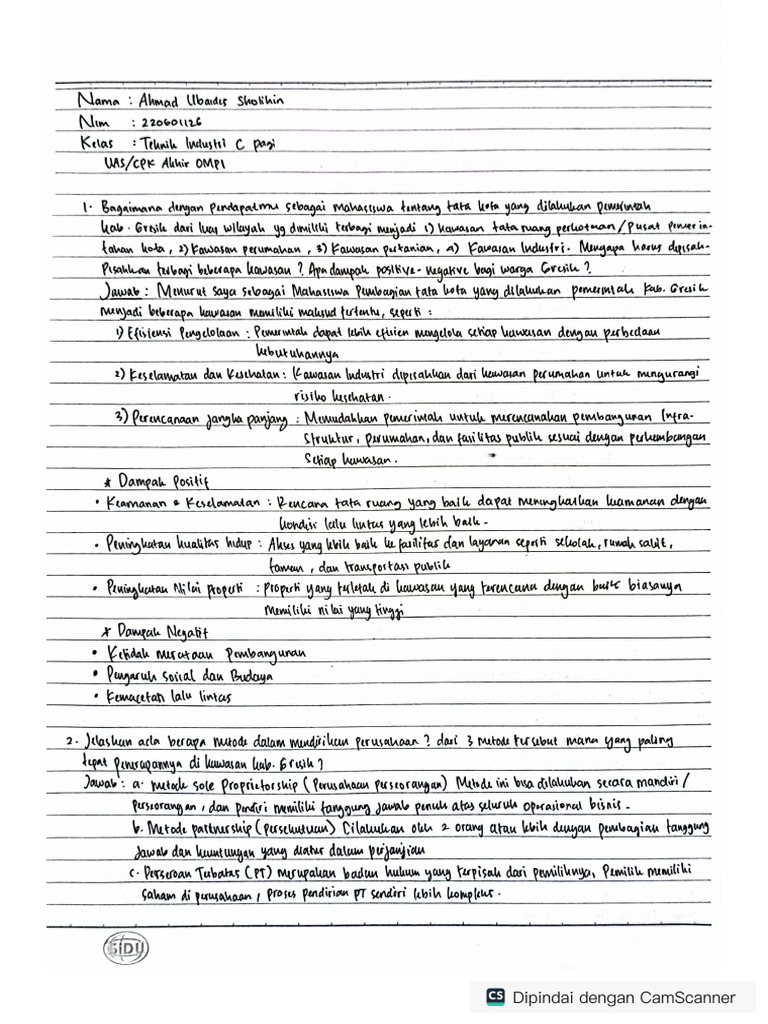 Nama : Ahmad Ubaidis Sholihin
Nim : 220601126
Kelas : Teknik Industri C pagi
UAS/CPK Akhir OMPI
1. Bagaimana dengan pendapatmu sebagai mahasiswa tentang tata kota yang dilakukan pemerintah
kab. Gresik dari luas wilayah yg dimiliki terbagi menjadi 1) kawasan tata ruang perkotaan/Pusat pemerin-
tahan kota, 2) Kawasan perumahan, 3) Kawasan pertanian, 4) Kawasan Industri. Mengapa harus dipisah-
Pisahkan terbagi beberapa kawasan? Apa dampak positive-negative bagi warga Gresik?
Jawab : Menurut saya sebagai Mahasiswa Pembagian tata kota yang dilakukan pemerintah Kab. Gresik
menjadi beberapa kawasan memiliki maksud tertentu, seperti :
1) Efisiensi Pengelolaan : Pemerintah dapat lebih efisien mengelola setiap kawasan dengan perbedaan
kebutuhannya
2) Keselamatan dan Kesehatan : Kawasan Industri dipisahkan dari kawasan perumahan untuk mengurangi
risiko kesehatan.
3) Perencanaan jangka panjang : Memudahkan pemerintah untuk merencanakan pembangunan Infra-
Struktur, perumahan, dan fasilitas publik sesuai dengan perkembangan
Setiap kawasan.
* Dampak Positif
• Keamanan & Keselamatan : Rencana tata ruang yang baik dapat meningkatkan keamanan dengan
kondisi lalu lintas yang lebih baik.
• Peningkatan kualitas hidup : Akses yang lebih baik ke fasilitas dan layanan seperti sekolah, rumah sakit,
taman, dan transportasi publik
• Peningkatan Nilai properti : properti yang terletak di kawasan yang terencana dengan baik biasanya
Memiliki nilai yang tinggi
* Dampak Negatif
• Ketidak merataan Pembangunan
• Pengaruh sosial dan Budaya
• Kemacetan lalu lintas
2. Jelaskan ada berapa metode dalam mendirikan perusahaan? dari 3 metode tersebut mana yang paling
tepat penerapannya di kawasan kab. Gresik?
Jawab : a. metode sole Proprietorship (Perusahaan perseorangan) Metode ini bisa dilakukan secara mandiri/
Perseorangan, dan pendiri memiliki tanggung jawab penuh atas seluruh operasional bisnis.
b. Metode partnership (persekutuan) Dilakukan oleh 2 orang atau lebih dengan pembagian tanggung
Jawab dan keuntungan yang diatur dalam perjanjian
c. Perseroan Tubatas (PT) merupakan badan hukum yang terpisah dari pemiliknya, Pemilik memiliki
saham di perusahaan, proses pendirian PT sendiri lebih kompleks.
SIDU
CS Dipindai dengan CamScanner